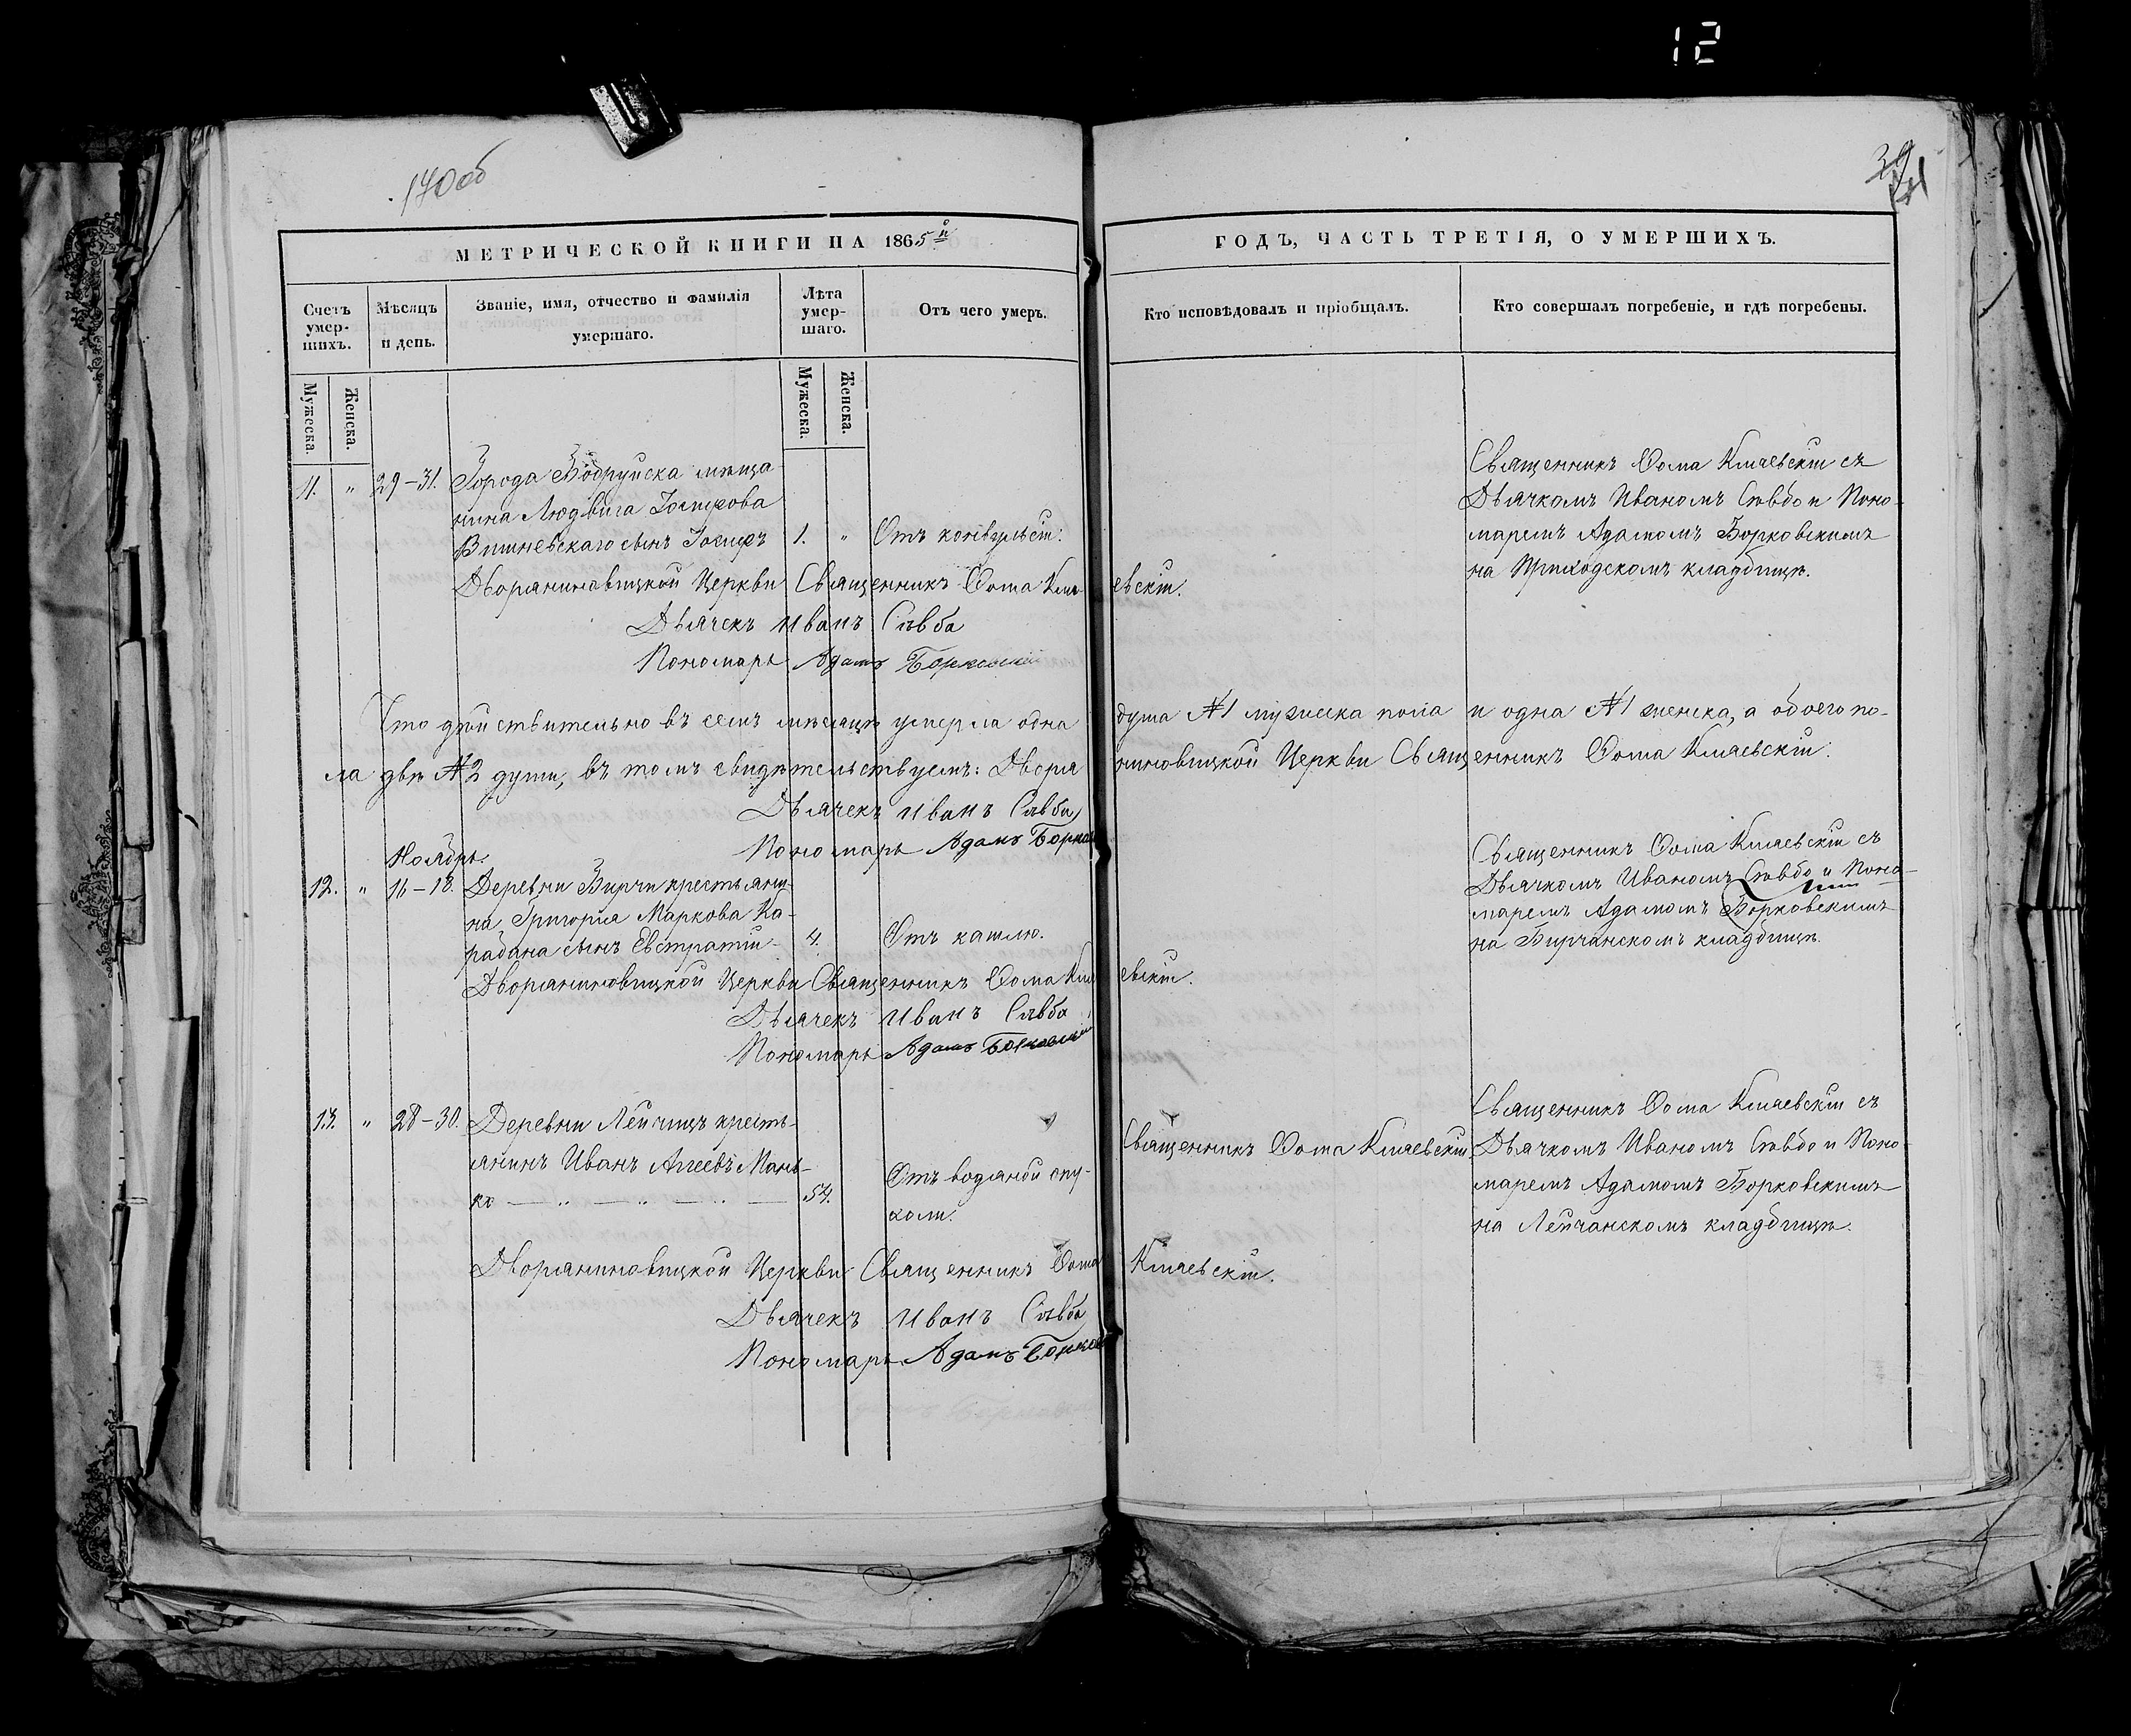 12
170об
39
МЕТРИЧЕСКОЙ КНИГИ НА 1865й
ГОДЪ, ЧАСТЬ ТРЕТІЯ, О УМЕРШИХЪ.
Счетъ умер-шихъ.
Мѣсяцъ и день.
Званіе, имя, отчество и фамилія умершаго.
Лѣта умер-шаго.
Отъ чего умеръ.
Кто исповѣдовалъ и пріобщалъ.
Кто совершалъ погребеніе, и гдѣ погребены.
Мужеска.
Женска.
Мужеска.
Женска.
11. " 29-31. Города Бобруйска мѣща
нина Людвига Іосифова
Вишневскаго сынъ Іосифъ 1. " Отъ конвульсіи.
Священникъ Ѳома Клаевскій съ
Дьячкомъ Иваномъ Сѣвбо и Поно-
маремъ Адамомъ Борковскимъ
на Приходскомъ кладбищѣ.
Дворяниновицкой Церкви Священникъ Ѳома Кла евскій.
Дьячекъ Иванъ Сѣвба
Пономарь Адамъ Борковскій
Что дѣйствительно въ семъ мѣсяцѣ умерла одна душа №1 мужеска пола и одна №1 женска, а обоего по-
ла двѣ №2 души, въ томъ свидѣтельствуемъ: Дворя ниновицкой Церкви Священникъ Ѳома Клаевскій.
Дьячекъ Иванъ Сѣвба
Пономарь Адамъ Борков
Ноябрь.
12. " 16-18. Деревни Бирчи крестьяни-
на Григорія Маркова Ка-
рабана сынъ Евстратій 4. Отъ кашлю.
Священникъ Ѳома Клаевскій съ
Дьячкомъ Иваномъ Сѣвбо и Поно-
маремъ Адамомъ Борковскимъ
на Бирчанскомъ кладбищѣ.
Дворяниновицкой Церкви Священникъ Ѳома Кла евскій.
Дьячекъ Иванъ Сѣвба
Пономарь Адамъ Борковскій
13. " 28-30. Деревни Лейчицъ кресть-
янинъ Иванъ Агеевъ Мань-
ко — " — " — " — 54. Отъ водяной опу-
холи.
Священникъ Ѳома Клаевскій
Священникъ Ѳома Клаевскій съ
Дьячкомъ Иваномъ Сѣвбо и Поно-
маремъ Адамомъ Борковскимъ
на Лейчанскомъ кладбищѣ.
Дворяниновицкой Церкви Священникъ Ѳома Клаевскій.
Дьячекъ Иванъ Сѣвба
Пономарь Адамъ Борков